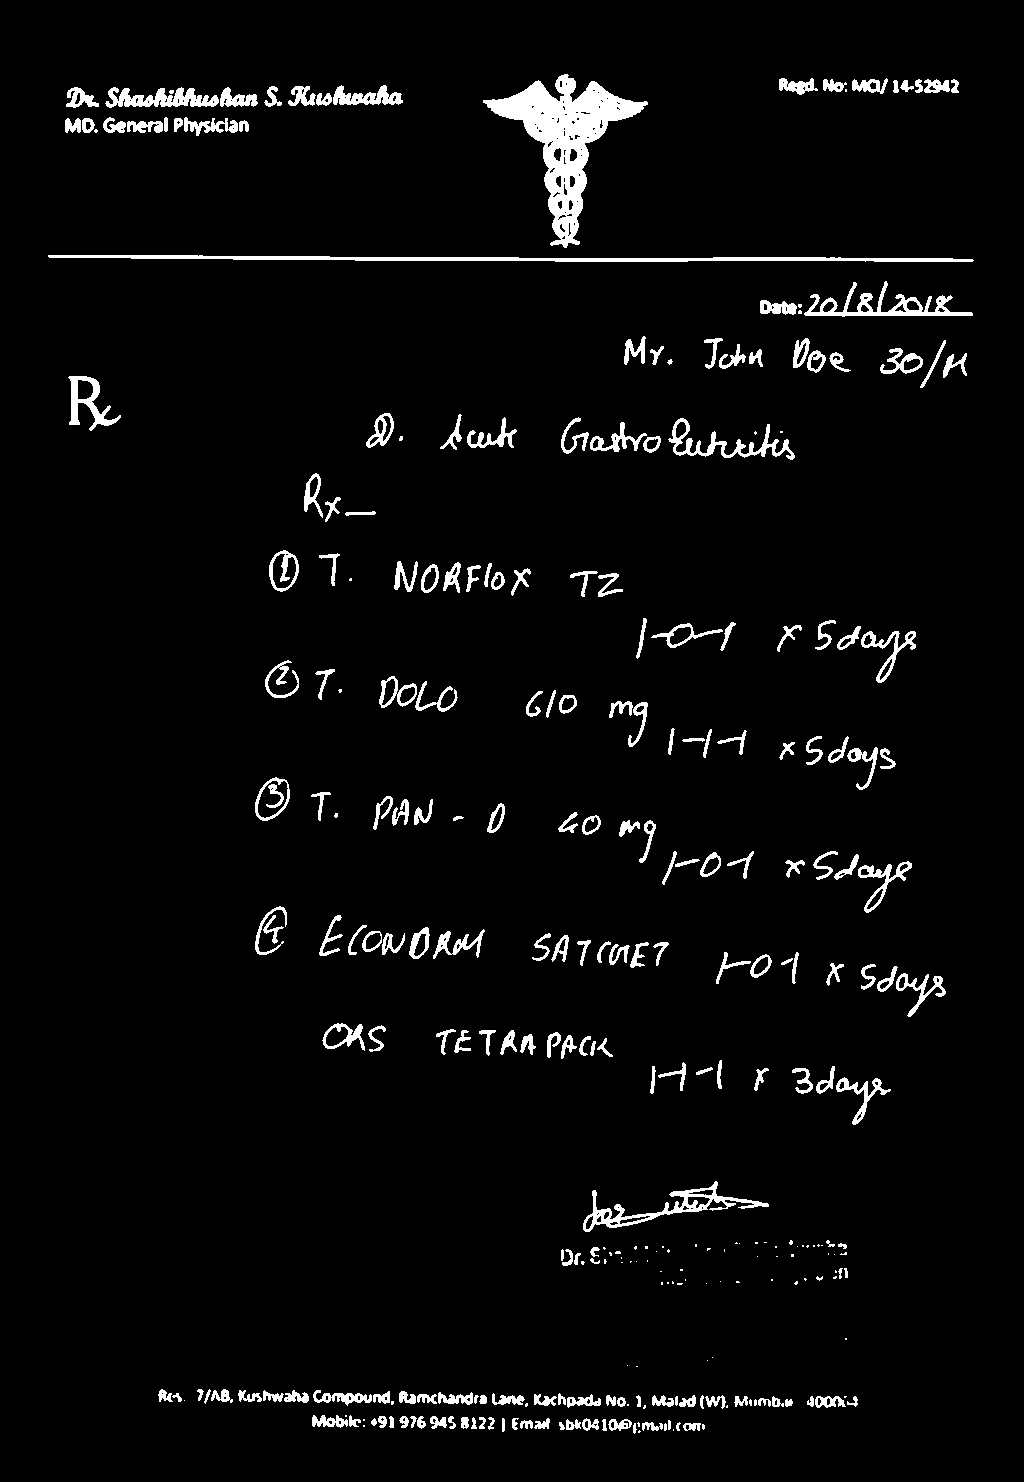 Dr. Shashibhushan S. Kushwaha
MD. General Physician
Regd. No: MCI/ 14-52942
Date: 20/8/2018
Mr. John Doe 30/M
Rx
D. Acute GastroEnteritis
Rx_
① T. NORFlox TZ
1-0-1 x 5days
② T. DOLO 610 mg
1-1-1 x 5days
③ T. PAN - D 40 mg
1-0-1 x 5days
④ ECONORM SATCHET 1-0-1 x 5days
ORS TETRAPACK
1-1-1 x 3days
Dr.
Res. 7/AB, Kushwaha Compound, Ramchandra Lane, Kachpada No. 1, Malad (W), Mumbai 400064
Mobile: +91 976 945 8122 | Email sbk0410@gmail.com